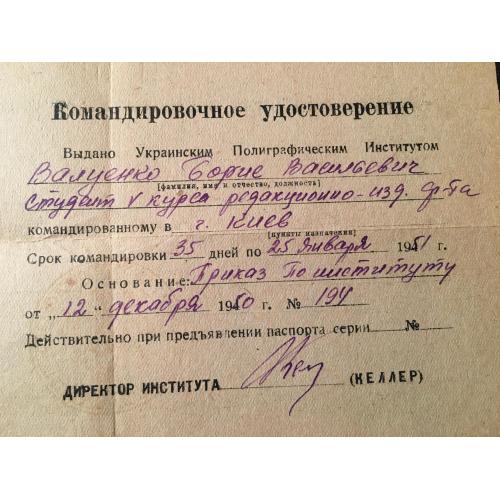 Командировочное удостоверение
Выдано Украинским Полиграфическим Институтом
Валуенко Борис Васильевич
[фамилия, имя и отчество, должность]
студент V курса редакционно-изд. ф-та
командированному в г. Киев
[пункты назначения]
Срок командировки 35 дней по 25 января 1951 г.
Основание: Приказ по институту
от „12" декабря 1950 г. № 194
Действительно при предъявлении паспорта серии №
ДИРЕКТОР ИНСТИТУТА (КЕЛЛЕР)